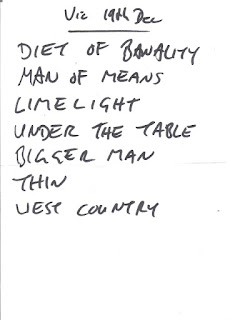 Vic 19th Dec
DIET OF BANALITY
MAN OF MEANS
LIMELIGHT
UNDER THE TABLE
BIGGER MAN
THIN
WEST COUNTRY